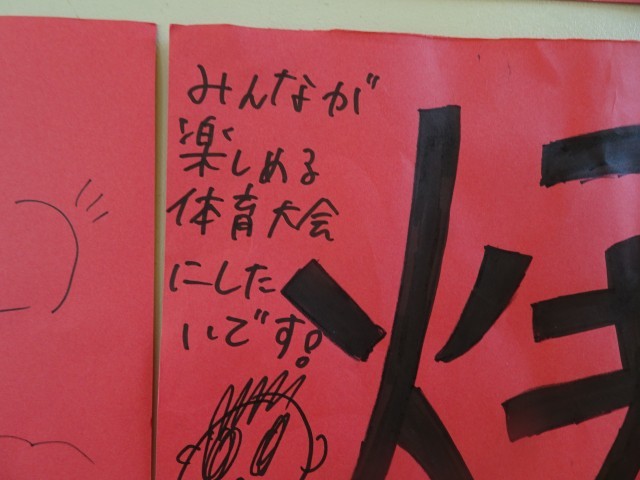 みんなが
楽しめる
体育大会
にした
いです!